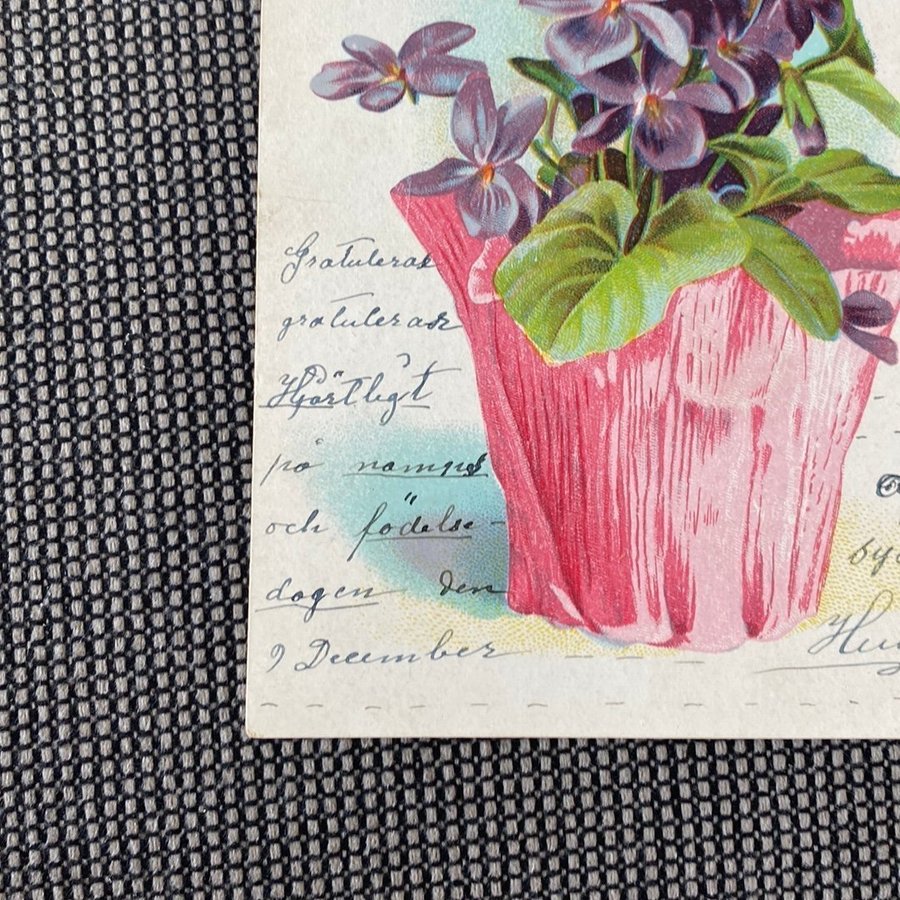 Gratulerar
gratulerar
Hjärtligt
på namns
och födelse-
dagen den
9 December